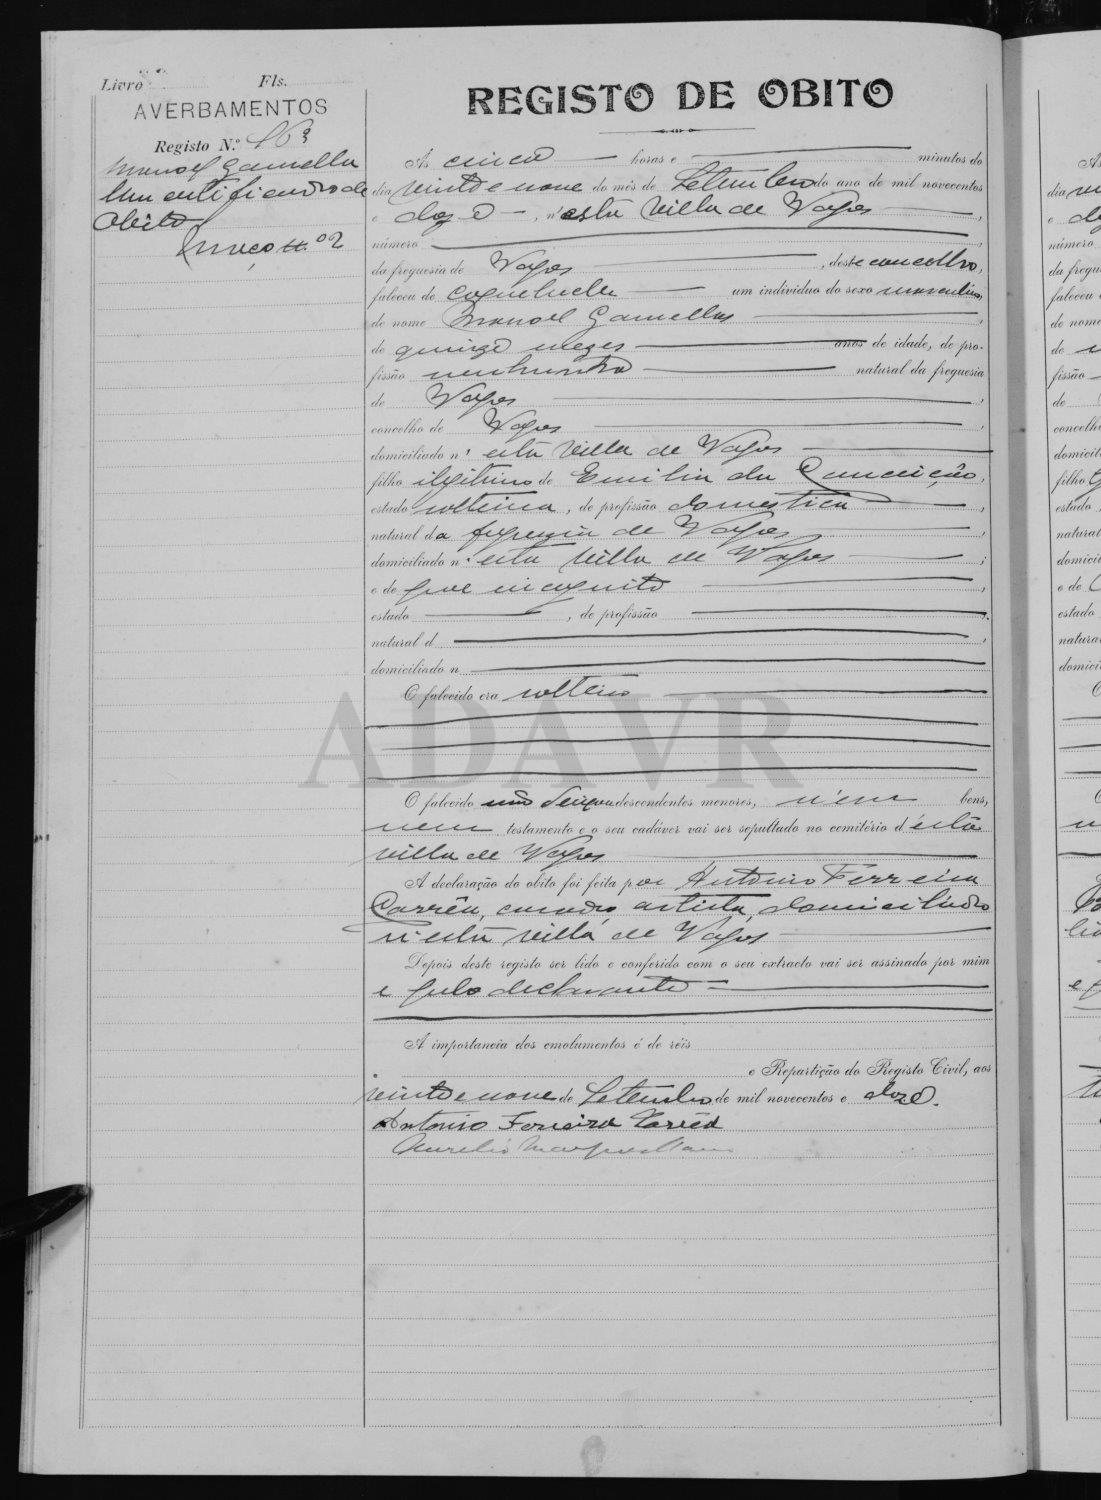 Livro Fls.
AVERBAMENTOS
Registo N.º 163
Manoel Gamellas
Um certificado de
obito
Maço n.º 2
REGISTO DE OBITO
Ás cinco horas e minutos do
dia vinte e nove do mês de Setembro do ano de mil novecentos
e doze, n'esta villa de Vagos,
número
da freguesia de Vagos, deste concelho,
faleceu de coqueluche um individuo do sexo masculino,
de nome Manoel Gamellas,
de quinze mezes anos de idade, de pro-
fissão nenhuma natural da freguesia
de Vagos,
concelho de Vagos,
domiciliado n'esta villa de Vagos
filho ilegitimo de Emilia da Conceição,
estado solteira, de profissão domestica,
natural da freguezia de Vagos,
domiciliado n'esta villa de Vagos;
e de pae incognito,
estado, de profissão
natural d,
domiciliado n
O falecido era solteiro
ADAVR
O falecido não deixou descendentes menores, nem bens,
nem testamento e o seu cadáver vai ser sepultado no cemitério d'esta
villa de Vagos
A declaração do obito foi feita por Antonio Ferreira
Corrêa, casado, artista, domiciliado
n'esta villa de Vagos
Depois deste registo ser lido e conferido com o seu extracto vai ser assinado por mim
e pelo declarante
A importancia dos emolumentos é de réis
e Repartição do Registo Civil, aos
vinte e nove de Setembro de mil novecentos e doze.
Antonio Ferreira Corrêa
Aurelio